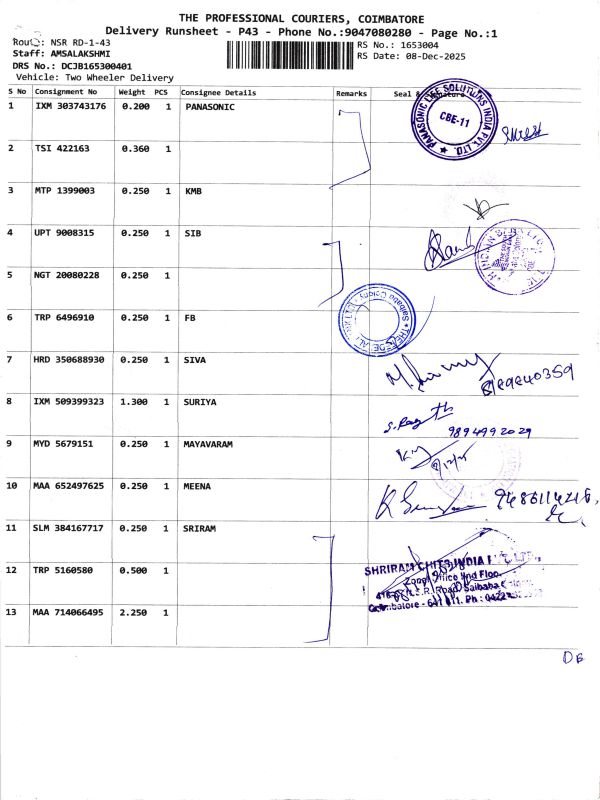 THE PROFESSIONAL COURIERS, COIMBATORE
Delivery Runsheet - P43 - Phone No.:9047080280 - Page No.:1
Route: NSR RD-1-43
RS No.: 1653004
Staff: AMSALAKSHMI
RS Date: 08-Dec-2025
DRS No.: DCJB165300401
Vehicle: Two Wheeler Delivery
S No Consignment No Weight PCS Consignee Details Remarks Seal &
1 IXM 303743176 0.200 1 PANASONIC
PANASONIC LIFE SOLUTIONS INDIA PVT. LTD.
CBE-11
2 TSI 422163 0.360 1
3 MTP 1399003 0.250 1 KMB
4 UPT 9008315 0.250 1 SIB
5 NGT 20080228 0.250 1
6 TRP 6496910 0.250 1 FB
Saibaba Colony
7 HRD 350688930 0.250 1 SIVA
8 IXM 509399323 1.300 1 SURIYA
9894992029
9 MYD 5679151 0.250 1 MAYAVARAM
10 MAA 652497625 0.250 1 MEENA
11 SLM 384167717 0.250 1 SRIRAM
12 TRP 5160580 0.500 1
SHRIRAM CHITS INDIA
Zonal Office IInd Floor
Road Saibaba
Coimbatore - 641 011. Ph : 0422
13 MAA 714066495 2.250 1